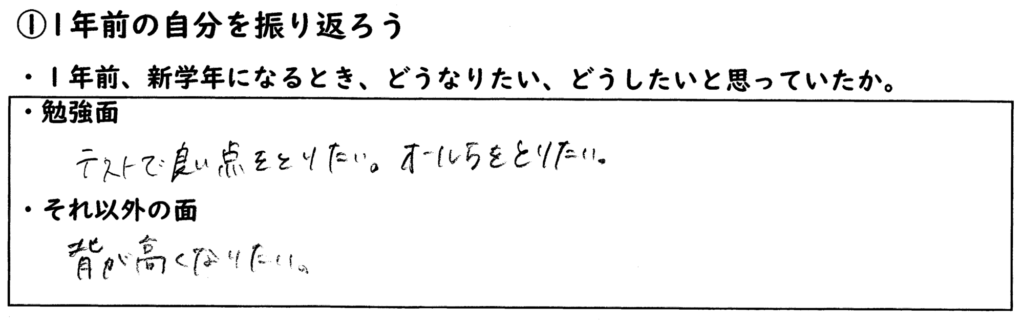 ①1年前の自分を振り返ろう
・1年前、新学年になるとき、どうなりたい、どうしたいと思っていたか。
・勉強面
テストで良い点をとりたい。オール5をとりたい。
・それ以外の面
背が高くなりたい。